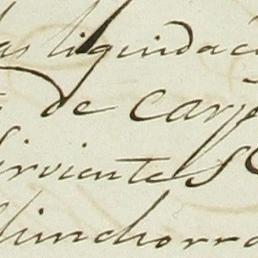 as liquidac
de Carp
sirviente S
hinchorro